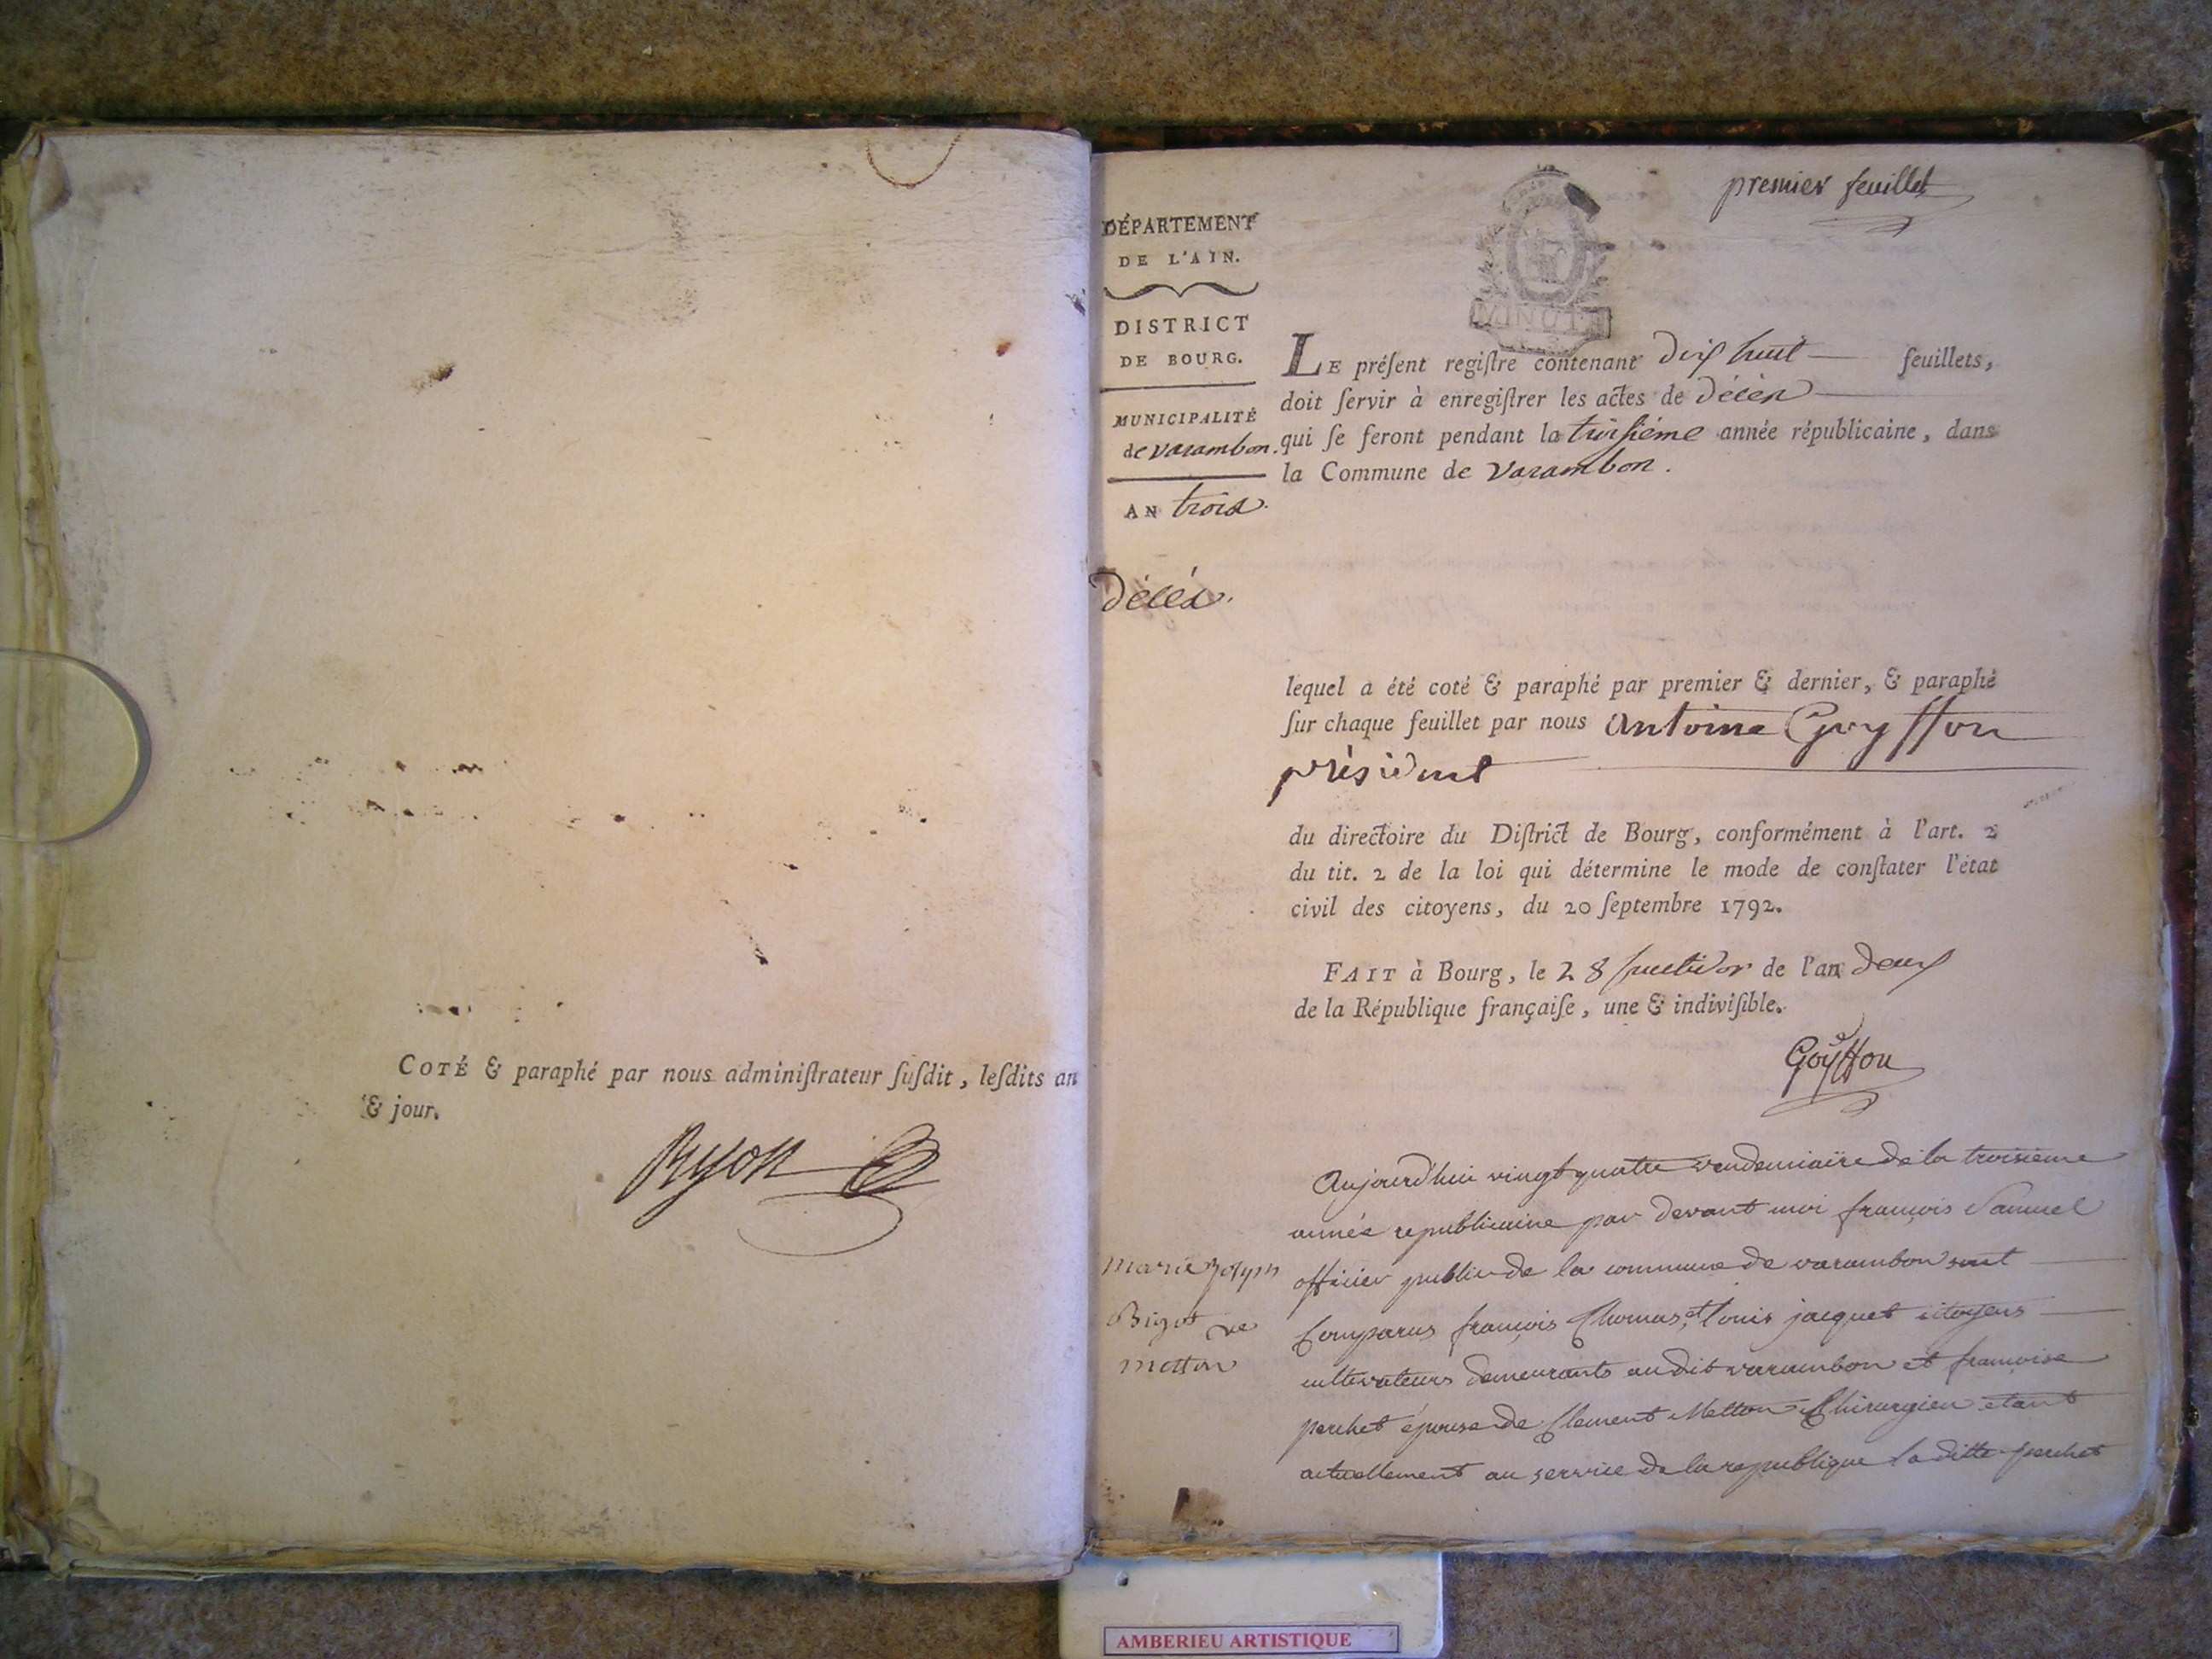 COTÉ & paraphé par nous adminiſtrateur ſuſdit, leſdits an
& jour.
premier feuillet
DÉPARTEMENT
DE L'AIN.
DISTRICT
DE BOURG.
MUNICIPALITÉ
de varambon.
AN trois.
décés.
MINUTE
LE préſent regiſtre contenant dix huit feuillets,
doit ſervir à enregiſtrer les actes de décès
qui ſe feront pendant la troisiéme année républicaine, dans
la Commune de varambon.
lequel a été coté & paraphé par premier & dernier, & paraphé
ſur chaque feuillet par nous antoine Goyffon
président
du directoire du Diſtrict de Bourg, conformément à l'art. 2
du tit. 2 de la loi qui détermine le mode de conſtater l'état
civil des citoyens, du 20 ſeptembre 1792.
FAIT à Bourg, le 28 fructidor de l'an deux
de la République françaiſe, une & indiviſible.
Goyffon
marie
Bigot ve
metton
Aujourd'hui vingt quatre vendemiaire de la troisieme
année republicaine par devant moi françois Samuel
officier public de la commune de varambon sont
Comparus françois Thomas, et louis jacquet citoyens
cultivateurs demeurants audit varambon et françoise
perchet épouse de Clement Metton Chirurgien etant
actuellement au service de la republique la ditte perchet
AMBERIEU ARTISTIQUE